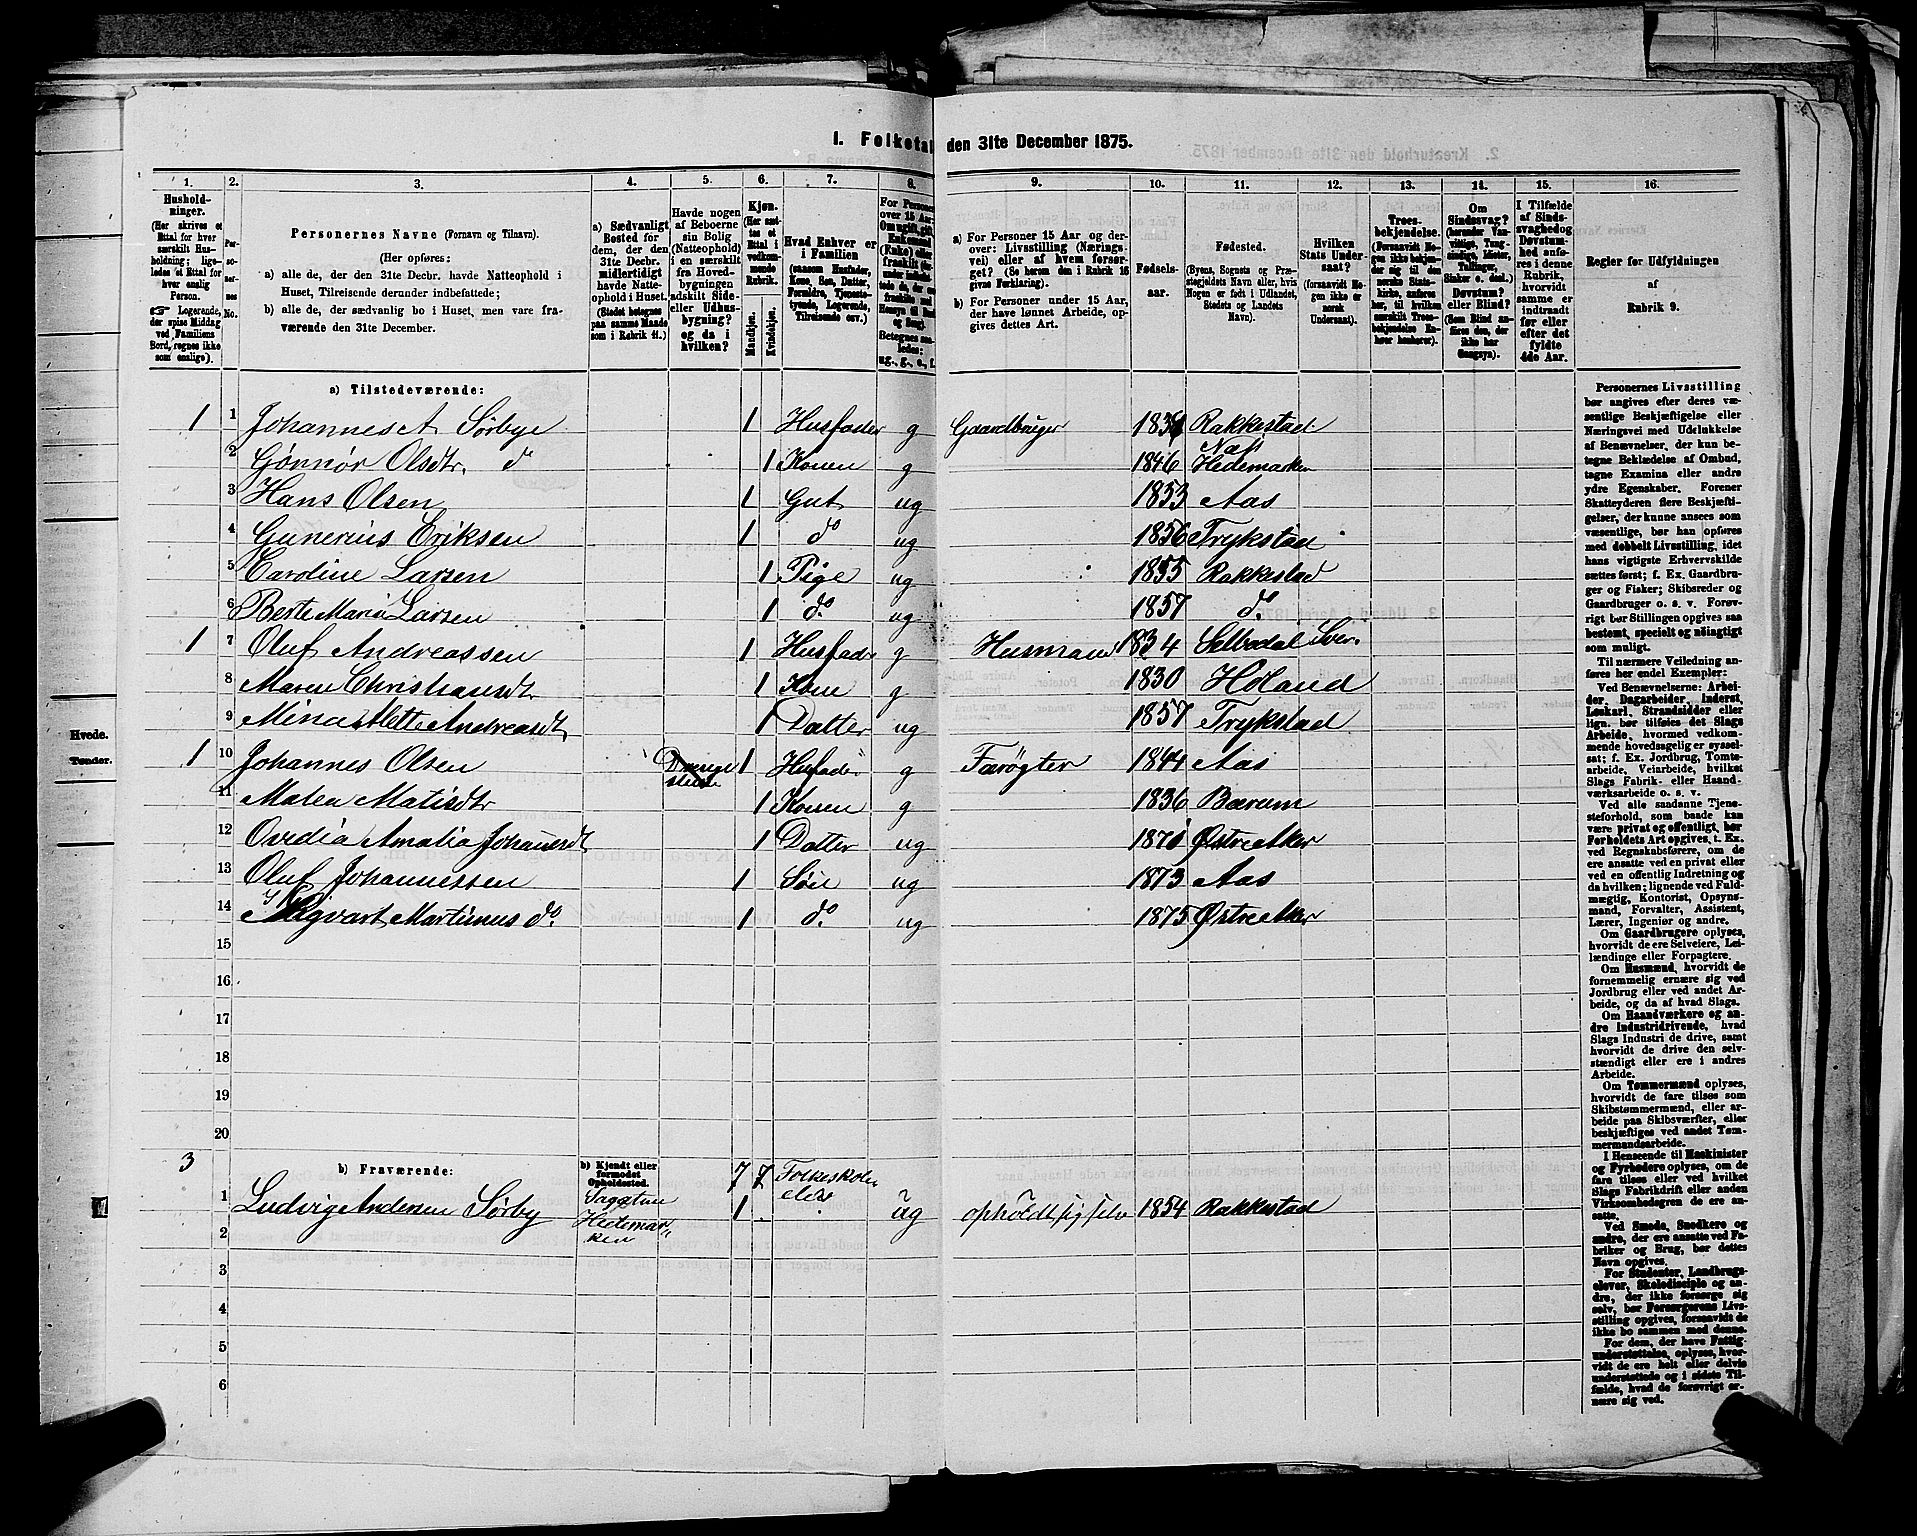 I. Folketal den 31te December 1875.
1. 2. 3. 4. 5. 6. 7. 8. 9. 10. 11. 12. 13. 14. 15. 16.
Husholdninger.
(Her skrives et Ettal for hver særskilt Husholdning; ligeledes et Ettal for hver enslig Person.
☞ Logerende, der spise Middag ved Familiens Bord, regnes ikke som enslige).
Personernes No.
Personernes Navne (Fornavn og Tilnavn).
(Her opføres:
a) alle de, der den 31te Decbr. havde Natteophold i Huset, Tilreisende derunder indbefattede;
b) alle de, der sædvanlig bo i Huset, men vare fraværende den 31te December.
a) Sædvanligt Bosted for dem, der den 31te Decbr. midlertidigt havde Natteophold i Huset. (Stedet betegnes paa samme Maade som i Rubrik 11.)
Havde nogen af Beboerne sin Bolig (Natteophold) i en særskilt fra Hovedbygningen adskilt Side- eller Udhusbygning? og da i hvilken?
Kjøn.
(Her sættes et Ettal i vedkommende Rubrik.
Mandkjøn. Kvindekjøn.
Hvad Enhver er i Familien
(saasom Husfader, Kone, Søn, Datter, Forældre, Tjenestetyende, Logerende, Tilreisende osv.)
a) For Personer 15 Aar og derover: Livsstilling (Næringsvei) eller af hvem forsørget? (Se herom den i Rubrik 16 givne Forklaring).
b) For Personer under 15 Aar, der have lønnet Arbeide, opgives dettes Art.
Fødselsaar.
Fødested.
(Byens, Sognets og Præstegjeldets Navn, eller, hvis Nogen er født i Udlandet, Stedets og Landets Navn).
Hvilken Stats Undersaat?
(forsaavidt Nogen ikke er norsk Undersaat).
Troesbekjendelse.
Om Sindssvag?
Døvstum?
eller Blind?
I Tilfælde af Sindssvaghed og Døvstumhed anføres i denne Rubrik, hvorvidt samme er indtraadt før eller efter det fyldte 4de Aar.
Regler for Udfyldningen
af
Rubrik 9.
a) Tilstedeværende:
1 1 Johannes A Sørbye 1 Husfader g Gaardbruger 1831 Rakkestad
2 Gönnör Olsdtr. do 1 Konen g 1846 Næs Hedemarken
3 Hans Olsen 1 Gut ug 1853 Aas
4 Gunerius Eriksen 1 do ug 1856 Trykstad
5 Caroline Larsen 1 Pige ug 1855 Rakkestad
6 Berte Maria Larsen 1 do. ug 1857 do.
1 7 Oluf Andreassen 1 Husfader g Husmand 1834 Selbodal Sver.
8 Maren Christiansdt 1 Kone g 1830 Høland
9 Mina Mette Andreasdt 1 Datter ug 1857 Trykstad
1 10 Johannes Olsen 1 Husfader g Farøgter 1844 Aas
11 Malea Matisdtr 1 Konen g 1836 Bærum
12 Ovedia Amalia Johannsdt 1 Datter ug 1871 Østre Aker
13 Oluf Johannessen 1 Søn ug 1873 Aas
14 Sigvart Martinus do. 1 do. ug 1875 Østre Aker
15
16
17
18
19
20
3 b) Fraværende: b) Kjendt eller formodet Opholdssted. 7 7 Folkeskole
1 Ludvig Andersen Sørby Sagatun 1 elev ug opholdt sig selv 1854 Rakkestad
2 Hedemarken
3
4
5
6
Personernes Livsstilling bør angives efter deres væsentlige Beskjæftigelse eller Næringsvei med Udelukkelse af Benævnelser, der kun betegne Beklædelse af Ombud, tagne Examina eller andre ydre Egenskaber. Forener Skatteyderen flere Beskjæftigelser, der kunne ansees som væsentlige, bør han opføres med dobbelt Livsstilling, idet hans vigtigste Erhvervskilde sættes først; f. Ex. Gaardbruger og Fisker; Skibsreder og Gaardbruger o. s. v. Forøvrigt bør Stillingen opgives saa bestemt, specielt og nøiagtigt som muligt.
Til nærmere Veiledning anføres her endel Exempler:
Ved Benævnelserne: Arbeider, Dagarbeider, Inderst, Løskarl, Strandsidder eller lign. bør tilføies det Slags Arbeide, hvormed vedkommende hovedsagelig er sysselsat; f. Ex. Jordbrug, Tomtearbeide, Veiarbeide, hvilket Slags Fabrik- eller Haandværksarbeide o. s. v.
Ved alle saadanne Tjenesteforhold, som baade kan være privat og offentligt, bør Forholdets Art opgives, t. Ex. ved Regnskabsførere, om de ere ansatte ved en privat eller ved en offentlig Indretning og da hvilken; lignende ved Fuldmægtig, Kontorist, Opsynsmand, Forvalter, Assistent, Lærer, Ingeniør og andre.
Om Gaardbrugere oplyses, hvorvidt de ere Selveiere, Leilændinge eller Forpagtere.
Om Husmænd, hvorvidt de fornemmelig ernære sig ved Jordbrug eller ved andet Arbeide, og da af hvad Slags.
Om Haandværkere og andre Industridrivende, hvad Slags Industri de drive, samt hvorvidt de drive den selvstændigt eller ere i andres Arbeide.
Om Tømmermænd oplyses, hvorvidt de fare tilsøs som Skibstømmermænd, eller arbeide paa Skibsværfter, eller beskjæftiges ved andet Tømmermandsarbeide.
I Henseende til Maskinister og Fyrbødere oplyses, om de fare tilsøs eller ved hvilket Slags Fabrikdrift eller anden Virksomhedsgren de ere ansatte.
Ved Smede, Snedkere og andre, der ere ansatte ved Fabriker og Brug, bør dettes Navn opgives.
For Studenter, Landbrugselever, Skoledisciple og andre, der ikke forsørge sig selv, bør Forsørgerens Livsstilling opgives, forsaavidt de ikke bo sammen med denne.
For dem, der have Fattigunderstøttelse, oplyses, hvorvidt de ere helt eller delvis understøttede og i sidste Tilfælde, hvad de forøvrigt ernære sig ved.
Hvede.
Tønder.